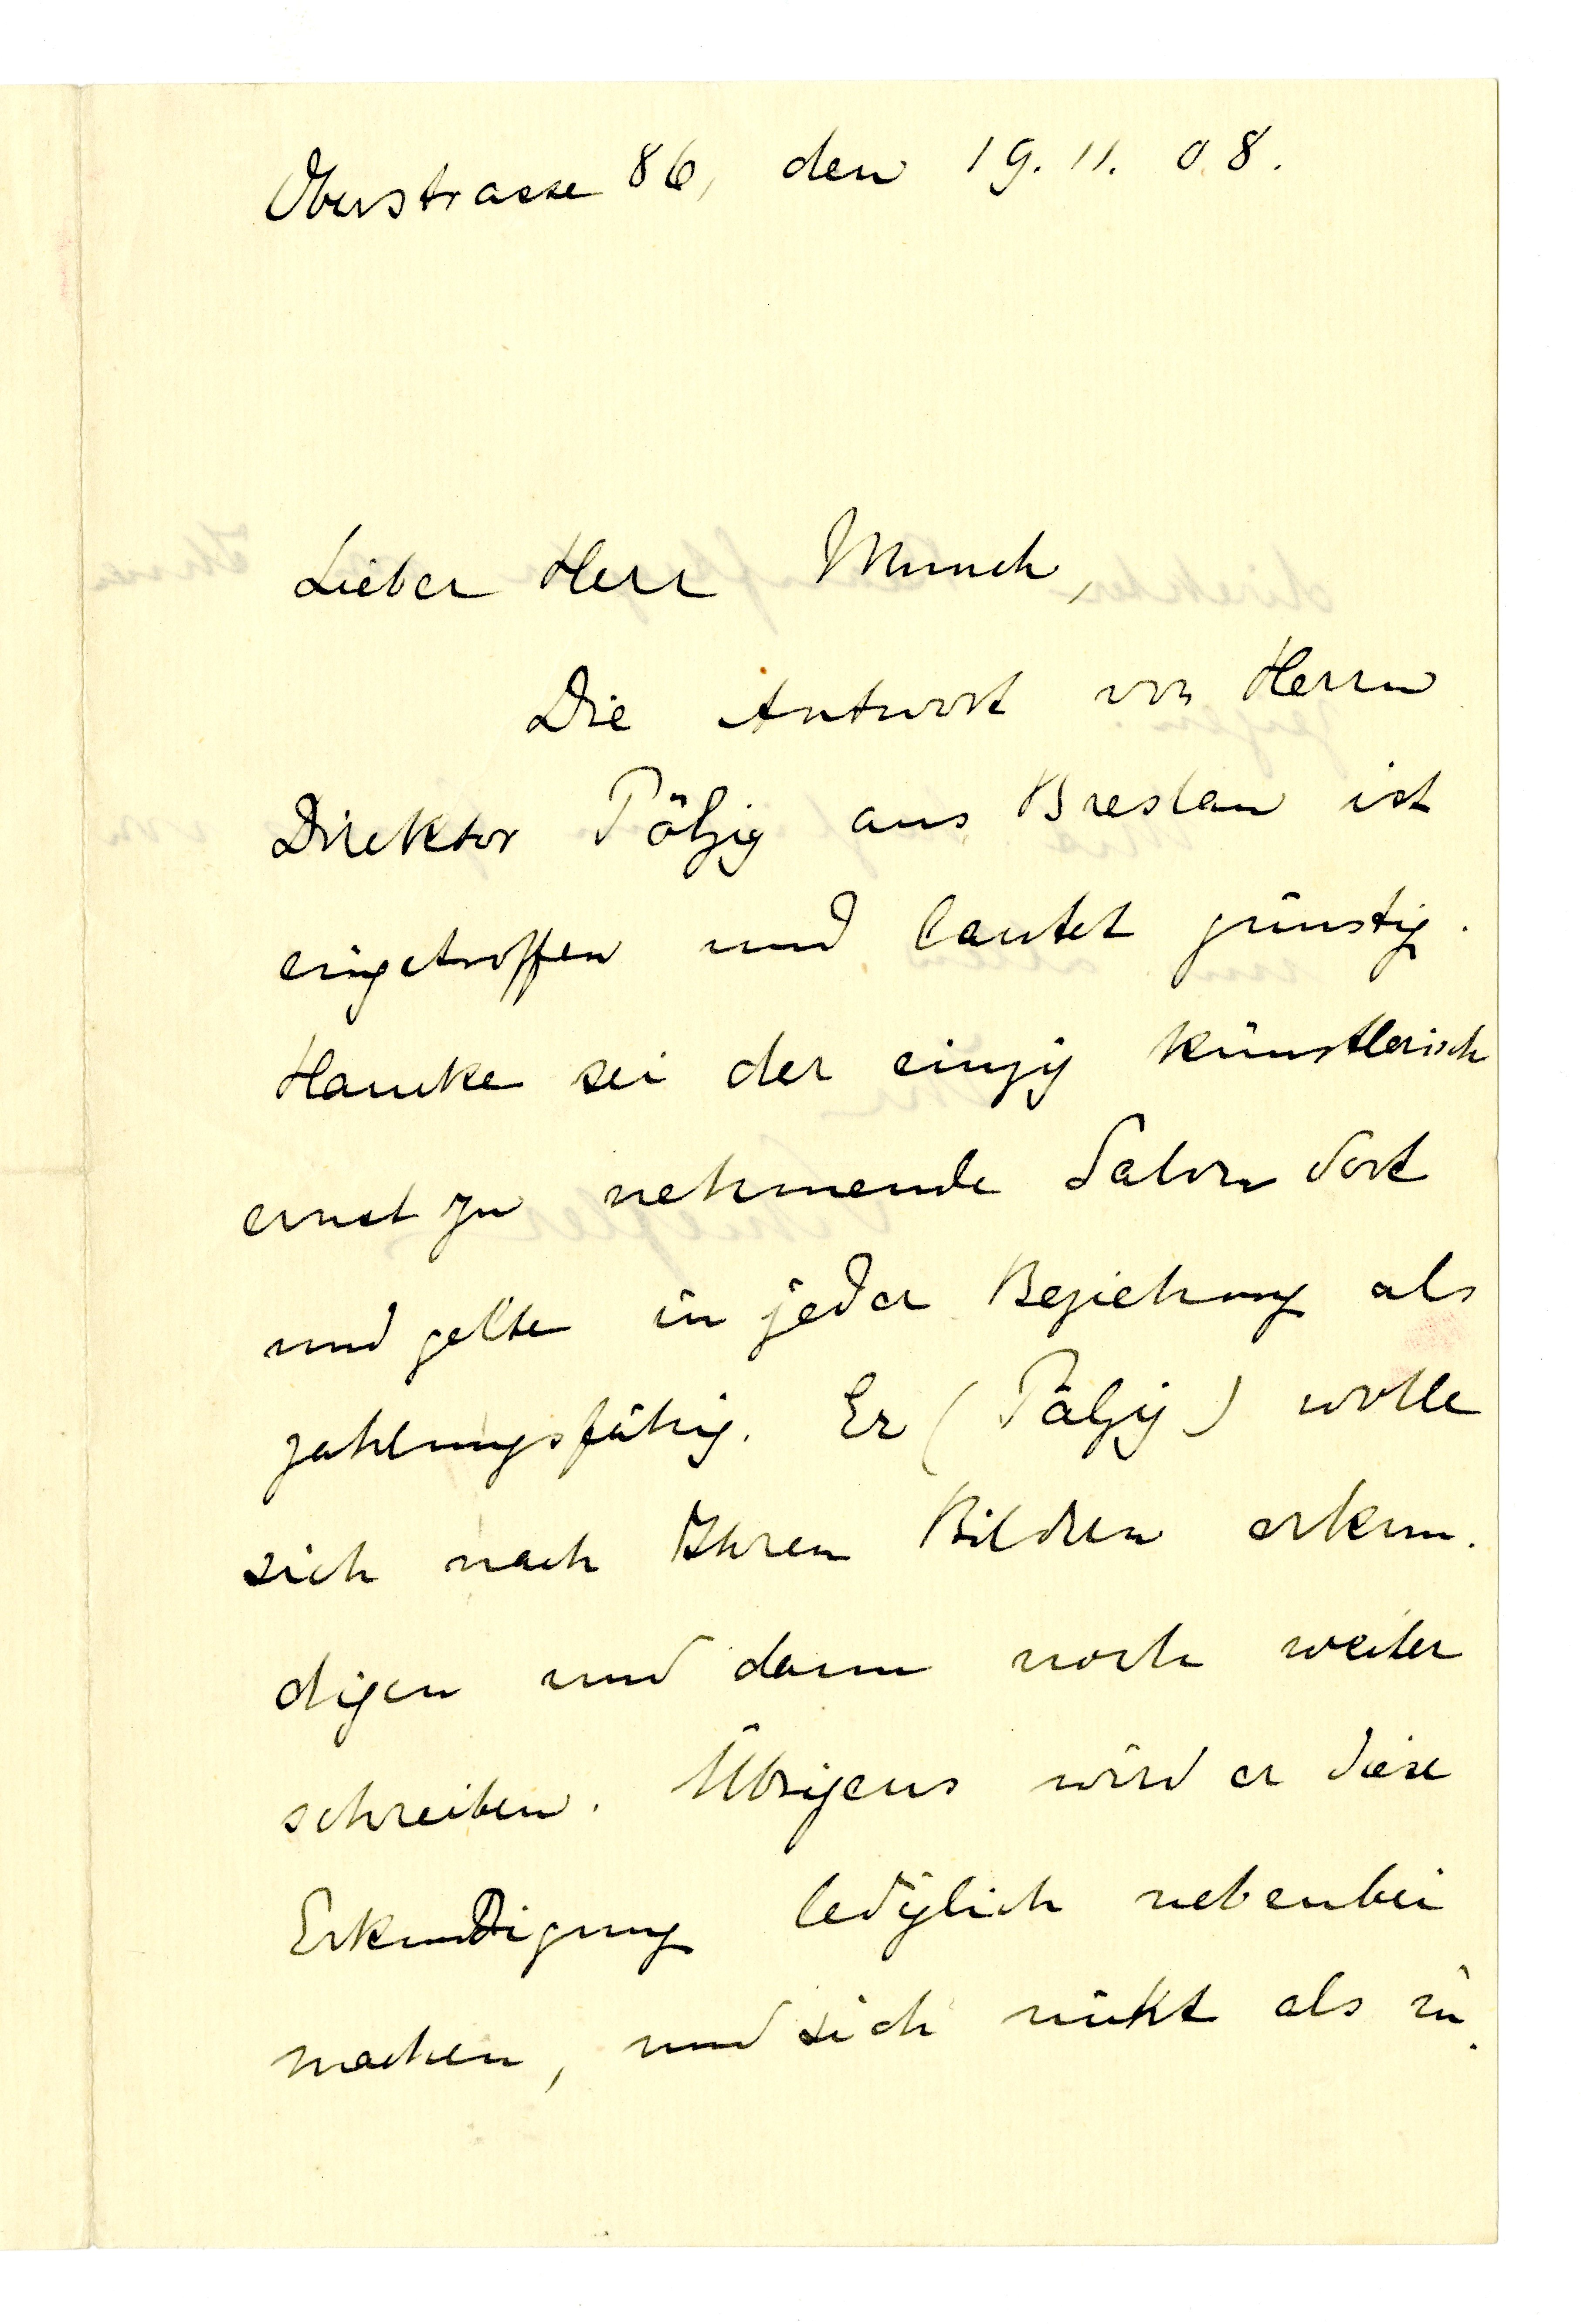 Oberstrasse 86, den 19. 11. 08.
Lieber Herr Munch,
Die Antwort von Herrn
Direktor Pölzig aus Breslau ist
eingetroffen und lautet günstig.
Hancke sei der einzig künstlerisch
ernst zu nehmende Salon dort
und gelte in jeder Beziehung als
zahlungsfähig. Er (Pölzig) wolle
sich nach Ihren Bildern erkun-
digen und dann noch weiter
schreiben. Übrigens wird er diese
Erkundigung lediglich nebenbei
machen, und sich nicht als in-